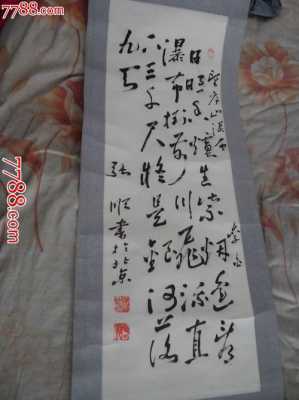 7788.com
望庐山瀑布 李白
日照香炉生紫烟遥看
瀑布挂前川飞流直
下三千尺疑是银河落
九天
张顺書于北京
7788.com